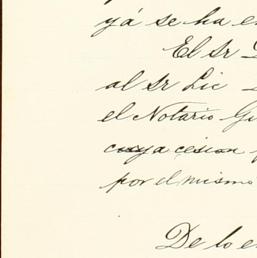 ya se ha en
El Sr
al Sr Lic
el Notario Gu
cuya cesion
por el mismo
De lo e